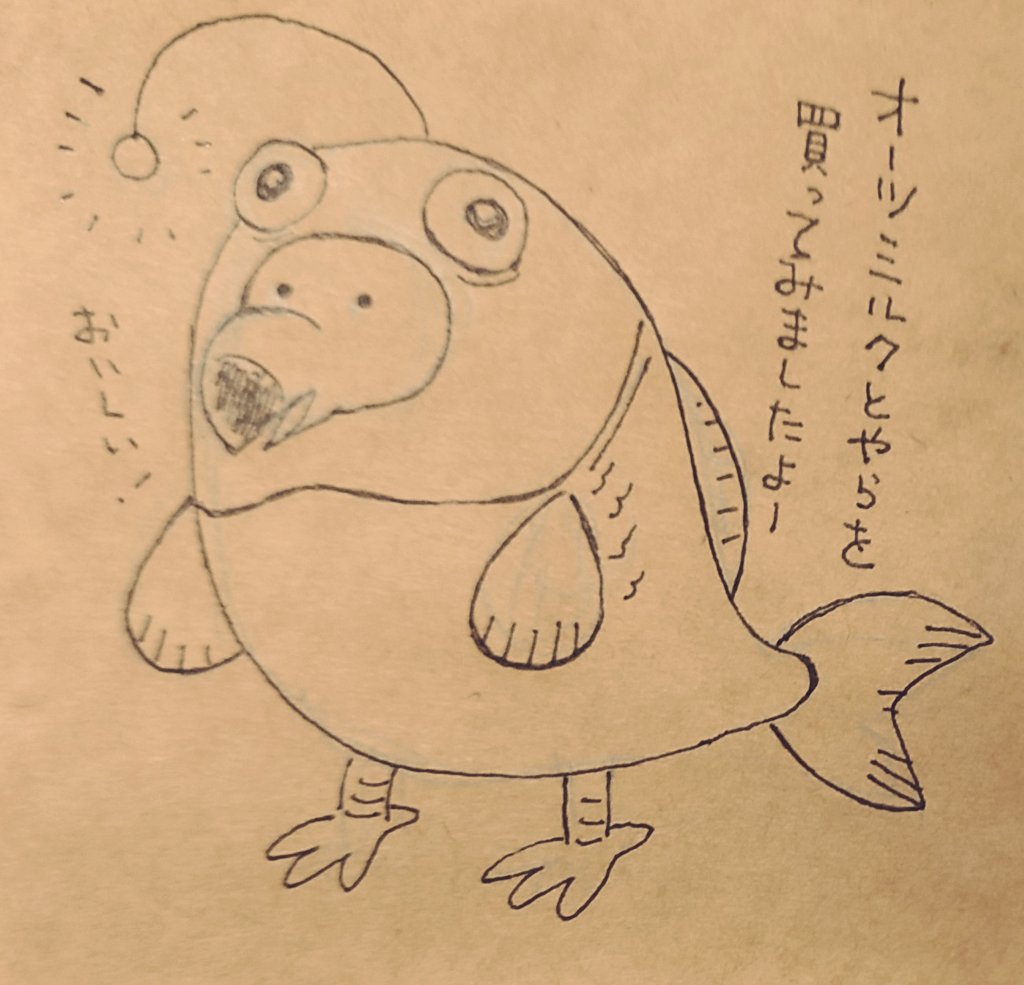 オーツミルクとやらを
買ってみましたよー
おいしい!